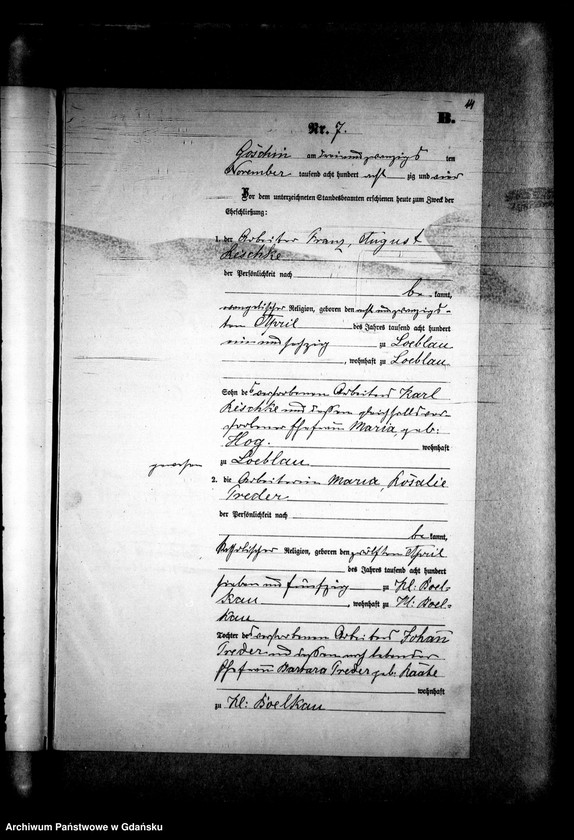 44
B.
Nr. 7.
Göschin am dreiundzwanzigsten
November tausend acht hundert achtzig und vier
Vor dem unterzeichneten Standesbeamten erschienen heute zum Zweck der
Eheschließung:
1. der Arbeiter Franz, August
Lischke
der Persönlichkeit nach
be kannt,
evangelischer Religion, geboren den achtundzwanzigs-
ten April des Jahres tausend acht hundert
einundsechzig zu Loeblau
, wohnhaft zu Loeblau
Sohn des verstorbenen Arbeiters Karl
Lischke und dessen gleichfalls ver-
storbener Ehefrau Maria, geb:
Hog. wohnhaft
gewesen zu Loeblau
2. die Arbeiterin Maria, Rosalie
Treder
der Persönlichkeit nach
be kannt,
katholischer Religion, geboren den zwölften April
des Jahres tausend acht hundert
sieben und fünfzig zu Kl: Boel-
kau , wohnhaft zu Kl: Boel-
kau
Tochter des verstorbenen Arbeiters Johan̄
Treder und dessen noch lebender
Ehefrau Barbara Treder geb: Raabe
wohnhaft
zu Kl: Boelkau
Archiwum Państwowe w Gdańsku